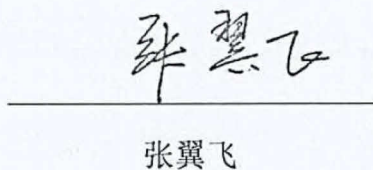 张翼飞
张翼飞